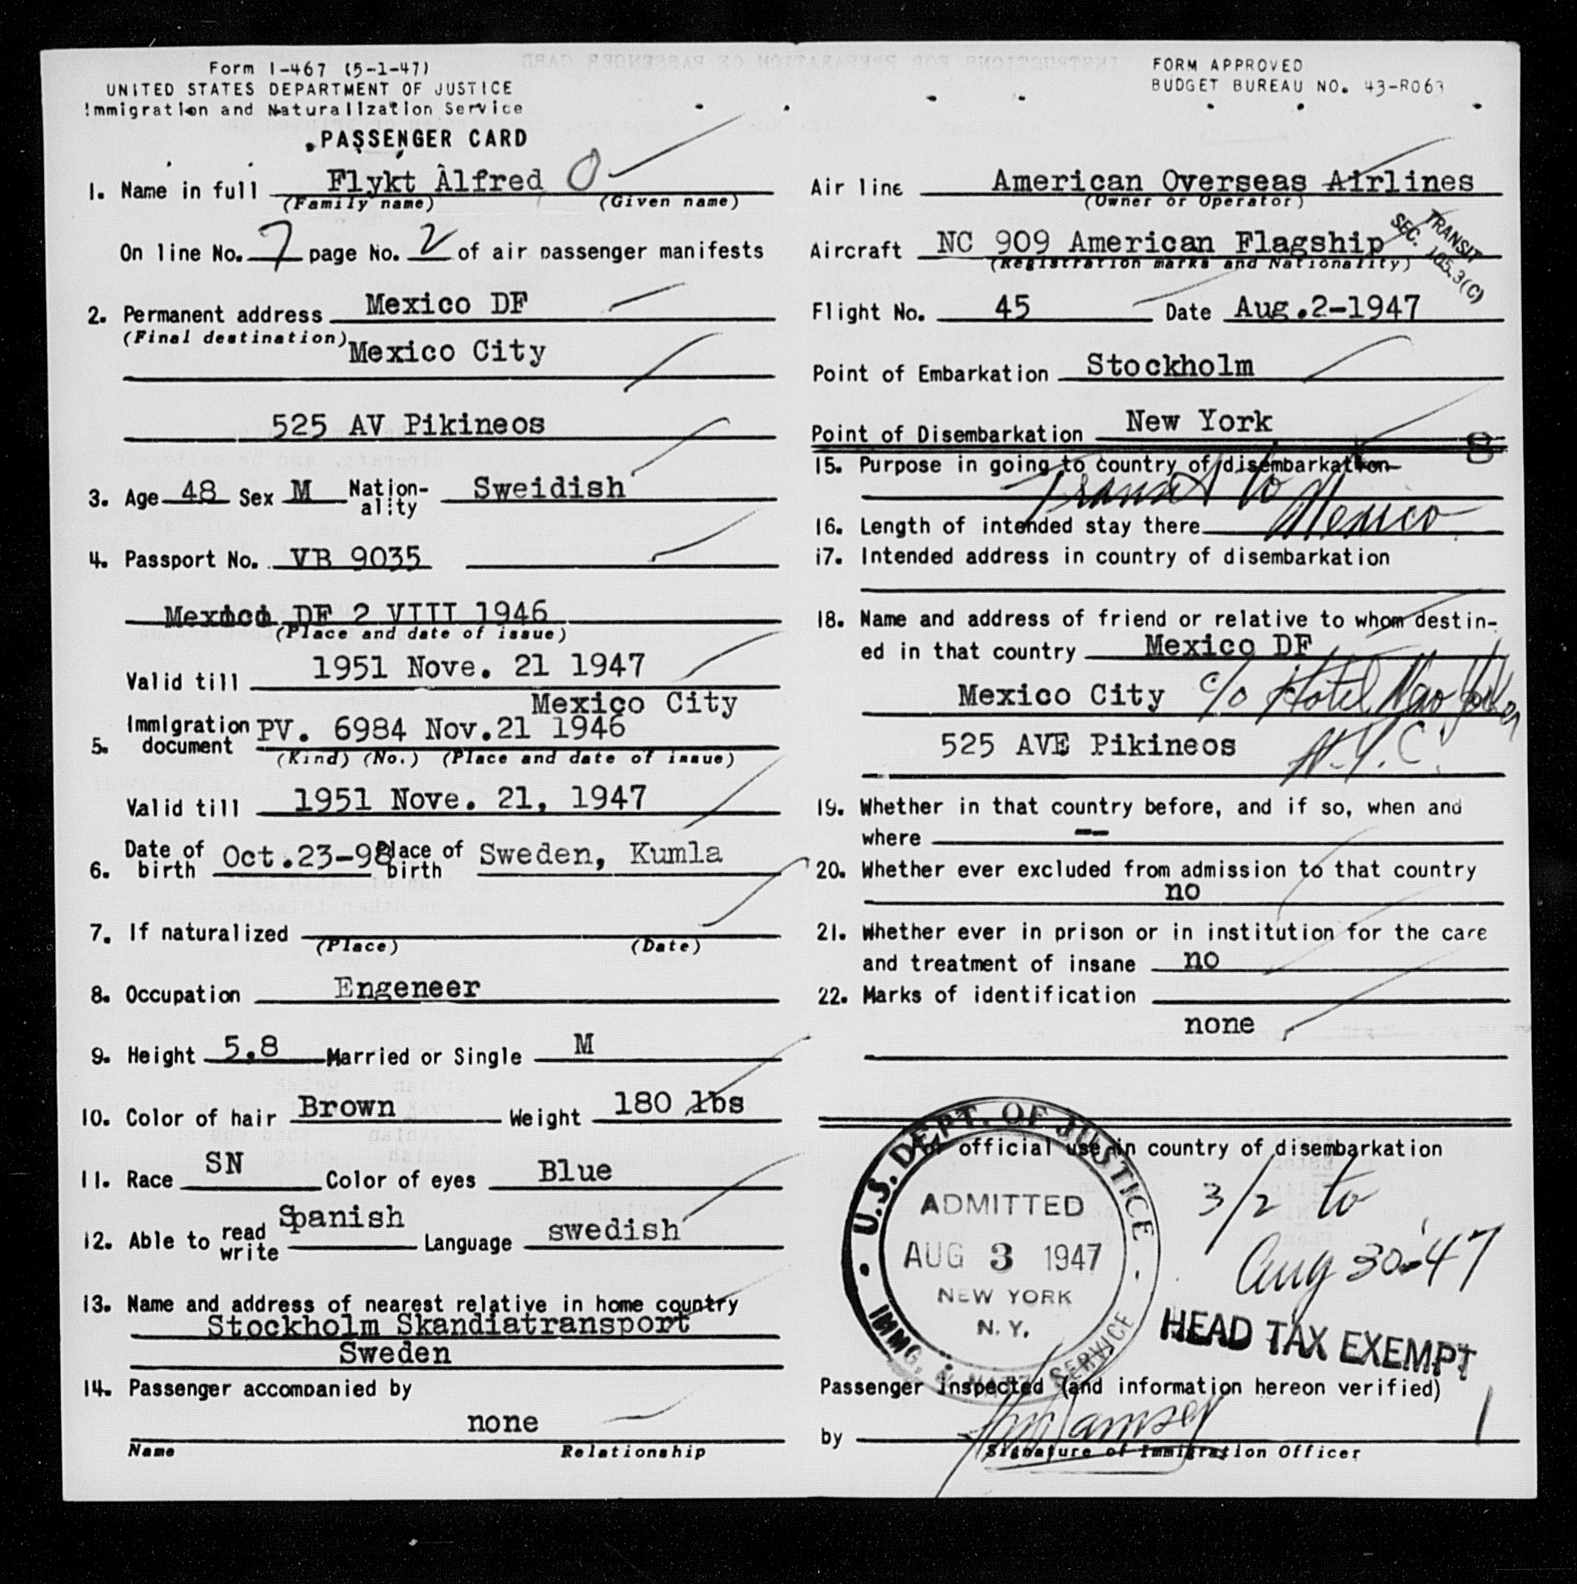 Form I-467 (5-1-47)
UNITED STATES DEPARTMENT OF JUSTICE
Immigration and Naturalization Service
PASSENGER CARD
FORM APPROVED
BUDGET BUREAU NO. 43-R063
1. Name in full Flykt Alfred O
(Family name) (Given name)
On line No. 7 page No. 2 of air passenger manifests
2. Permanent address Mexico DF
(Final destination) Mexico City
525 AV Pikineos
3. Age 48 Sex M Nation-ality Sweidish
4. Passport No. VB 9035
Mexico DF 2 VIII 1946
(Place and date of issue)
Valid till 1951 Nove. 21 1947
Mexico City
5. Immigration document PV. 6984 Nov.21 1946
(Kind) (No.) (Place and date of issue)
Valid till 1951 Nove. 21, 1947
6. Date of birth Oct.23-98 Place of birth Sweden, Kumla
7. If naturalized
(Place) (Date)
8. Occupation Engeneer
9. Height 5.8 Married or Single M
10. Color of hair Brown Weight 180 lbs
11. Race SN Color of eyes Blue
12. Able to read write Spanish Language swedish
13. Name and address of nearest relative in home country
Stockholm Skandiatransport
Sweden
14. Passenger accompanied by
none
Name Relationship
Air line American Overseas Airlines
(Owner or Operator)
Aircraft NC 909 American Flagship
(Registration marks and Nationality)
TRANSIT
SEC. 105.3(C)
Flight No. 45 Date Aug.2-1947
Point of Embarkation Stockholm
Point of Disembarkation New York
8
15. Purpose in going to country of disembarkation
Transit to
16. Length of intended stay there Mexico
17. Intended address in country of disembarkation
18. Name and address of friend or relative to whom destin-
ed in that country Mexico DF
Mexico City c/o Hotel New Yorker
525 AVE Pikineos N.Y.C.
19. Whether in that country before, and if so, when and
where --
20. Whether ever excluded from admission to that country
no
21. Whether ever in prison or in institution for the care
and treatment of insane no
22. Marks of identification
none
For official use in country of disembarkation
U.S. DEPT. OF JUSTICE
ADMITTED
AUG 3 1947
NEW YORK
N. Y.
IMMG. & NATZ. SERVICE
3/2 to
Aug 30-47
HEAD TAX EXEMPT
Passenger inspected (and information hereon verified)
by
Signature of Immigration Officer